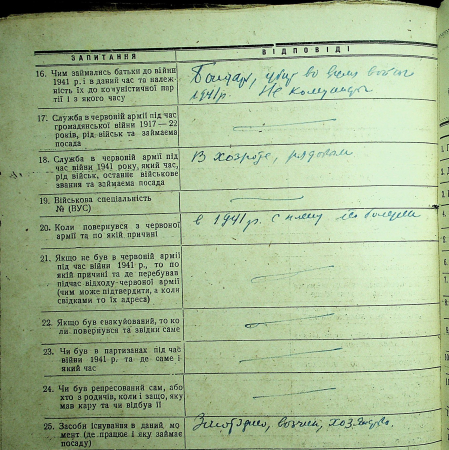 ЗАПИТАННЯ
ВІДПОВІДІ
16. Чим займались батьки до війни
1941 р. і в даний час та належ-
ність їх до комуністичної пар-
тії і з якого часу
во время
1941 р. Не коммунисты
17. Служба в червоній армії під час
громадянської війни 1917—22
років, рід військ та займаєма
посада
18. Служба в червоній армії під
час війни 1941 року, який час,
рід військ, останнє військове
звання та займаєма посада
В хозроте, рядовым
19. Військова спеціальність
№ (ВУС)
20. Коли повернувся з червоної
армії та по якій причині
в 1941 г. с плену по болезни
21. Якщо не був в червоній армії
під час війни 1941 р., то по
якій причині та де перебував
підчас відходу червоної армії
(чим може підтвердити, а коли
свідками то їх адреса)
22. Якщо був евакуйований, то ко-
ли повернувся та звідки саме
23. Чи був в партизанах під час
війни 1941 р. та де саме і
який час
24. Чи був репресований сам, або
хто з родичів, коли і защо, яку
мав кару та чи відбув її
25. Засоби існування в даний мо-
мент (де працює і яку займає
посаду)